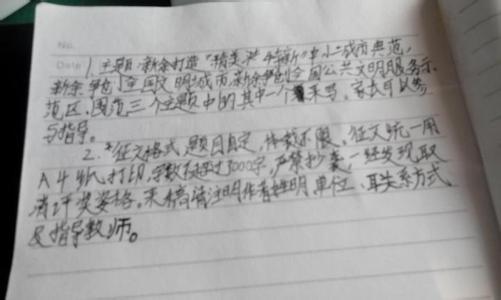 No.
Date 1. 主题:新余打造"精美严特新"中小城市典范,
新余争创全国文明城市,新余争创全国公共文明服务示
范区,围范三个主题中的其中一个来写,家长可以参
与指导。
2. *征文格式 题目自定,体裁不限,征文统一用
A4纸打印,字数不超过3000字,严禁抄袭一经发现取
消评奖资格。来稿请注明作者姓明单位、联系方式,
及指导教师。